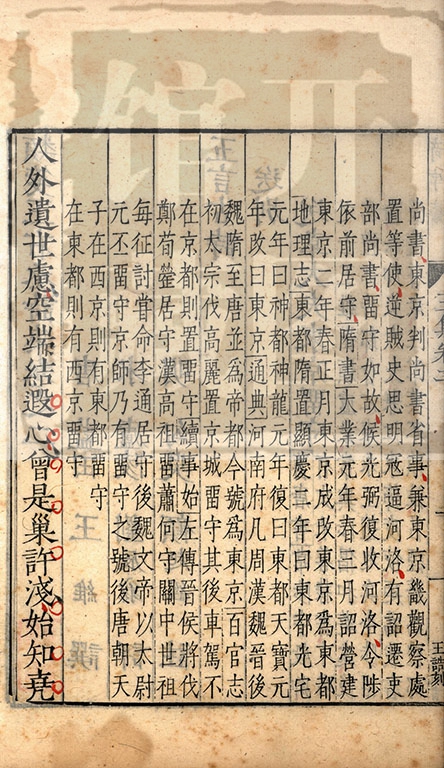 尚書東京判尚書省事兼東京畿觀察處
置等使逆賊史思明冦逼河洛有詔遷吏
部尚書畱守如故候光弼復收河洛令陟
依前居守隋書大業元年春三月詔營建
東京二年春正月東京成改東京爲東都
地理志東都隋置顯慶二年曰東都光宅
元年曰神都神龍元年復曰東都天寶元
年改曰東京通典河南府几周漢魏晉後
魏隋至唐並爲帝都今號爲東京百官志
初太宗伐高麗置京城畱守其後車駕不
在京都則置畱守續事始左傳晉侯將伐
鄭荀罃居守漢高祖畱蕭何守關中世祖
每征討嘗命李通居守後魏文帝以太尉
元丕畱守京師乃有畱守之號後唐朝天
子在西京則有東都畱守
在東都則有西京畱守
人外遺世慮空端結遐心曾是巢許淺始知堯
王誥刻